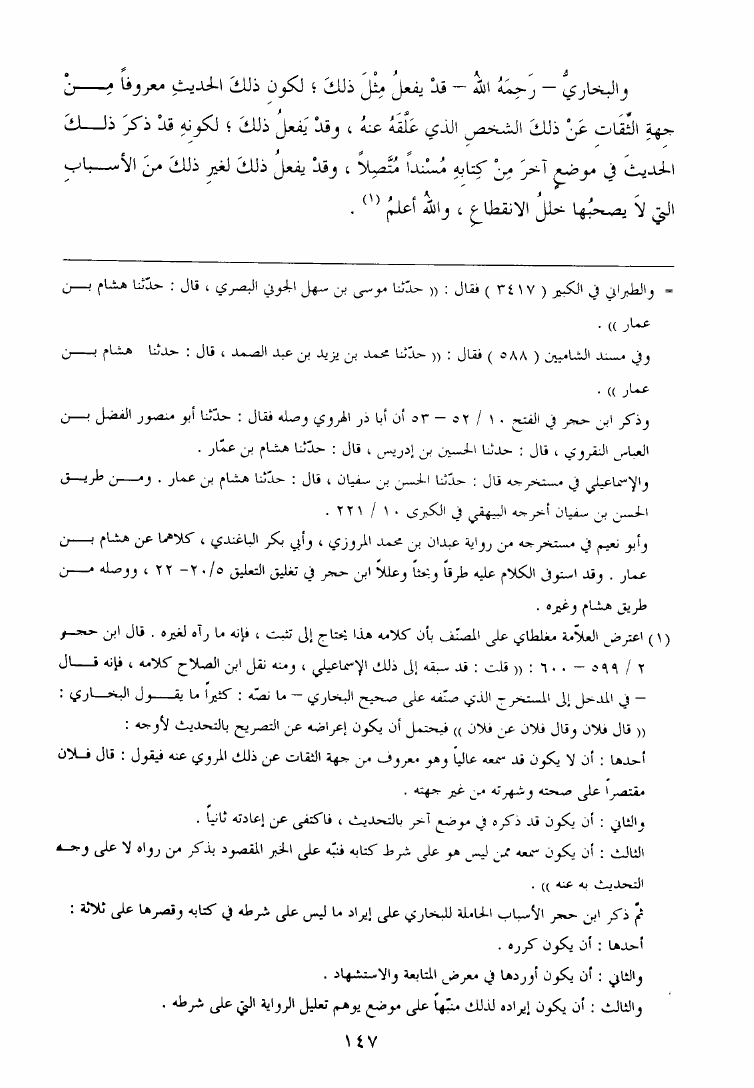 والبخاريُّ – رَحِمَهُ اللهُ – قدْ يفعلُ مِثْلَ ذلكَ ؛ لكونِ ذلكَ الحديثِ معروفاً مِـــنْ
جهةِ الثِّقَاتِ عَنْ ذلكَ الشخصِ الذي عَلَّقَهُ عنهُ ، وقدْ يَفعلُ ذلكَ ؛ لكونِهِ قدْ ذكرَ ذلــكَ
الحديثَ في موضعٍ آخرَ مِنْ كِتابِهِ مُسْنداً مُتَّصِلاً ، وقدْ يفعلُ ذلكَ لغيرِ ذلكَ منَ الأســبابِ
التي لاَ يصحبُها خللُ الانقطاعِ ، واللهُ أعلمُ (١) .
= والطبراني في الكبير ( ٣٤١٧ ) فقال : (( حدّثنا موسى بن سهل الجوني البصري ، قال : حدّثنا هشام بــن
عمار )) .
وفي مسند الشاميين ( ٥٨٨ ) فقال : (( حدّثنا محمد بن يزيد بن عبد الصمد ، قال : حدثنا هشام بـــن
عمار )) .
وذكر ابن حجر في الفتح ١٠ / ٥٢ – ٥٣ أن أبا ذر الهروي وصله فقال : حدّثنا أبو منصور الفضل بــن
العباس النقروي ، قال : حدثنا الحسين بن إدريس ، قال : حدّثنا هشام بن عمّار .
والإسماعيلي في مستخرجه قال : حدّثنا الحسن بن سفيان ، قال : حدّثنا هشام بن عمار . ومـــن طريــق
الحسن بن سفيان أخرجه البيهقي في الكبرى ١٠ / ٢٢١ .
وأبو نعيم في مستخرجه من رواية عبدان بن محمد المروزي ، وأبي بكر الباغندي ، كلاهما عن هشام بـــن
عمار . وقد استوفى الكلام عليه طرقاً وبحثاً وعللاً ابن حجر في تغليق التعليق ٥/ ٢٠– ٢٢ ، ووصله مـــن
طريق هشام وغيره .
(١) اعترض العلاّمة مغلطاي على المصنّف بأن كلامه هذا يحتاج إلى تثبت ، فإنه ما رآه لغيره . قال ابن حجــر
٢ / ٥٩٩ – ٦٠٠ : (( قلت : قد سبقه إلى ذلك الإسماعيلي ، ومنه نقل ابن الصلاح كلامه ، فإنه قـــال
– في المدخل إلى المستخرج الذي صنّفه على صحيح البخاري – ما نصّه : كثيراً ما يقــول البخــاري :
(( قال فلان وقال فلان عن فلان )) فيحتمل أن يكون إعراضه عن التصريح بالتحديث لأوجه :
أحدها : أن لا يكون قد سمعه عالياً وهو معروف من جهة الثقات عن ذلك المروي عنه فيقول : قال فــلان
مقتصراً على صحته وشهرته من غير جهته .
والثاني : أن يكون قد ذكره في موضع آخر بالتحديث ، فاكتفى عن إعادته ثانياً .
الثالث : أن يكون سمعه ممن ليس هو على شرط كتابه فنبّه على الخبر المقصود بذكر من رواه لا على وجــه
التحديث به عنه )) .
ثمّ ذكر ابن حجر الأسباب الحاملة للبخاري على إيراد ما ليس على شرطه في كتابه وقصرها على ثلاثة :
أحدها : أن يكون كرره .
والثاني : أن يكون أوردها في معرض المتابعة والاستشهاد .
والثالث : أن يكون إيراده لذلك منبّهاً على موضع يوهم تعليل الرواية التي على شرطه .
١٤٧